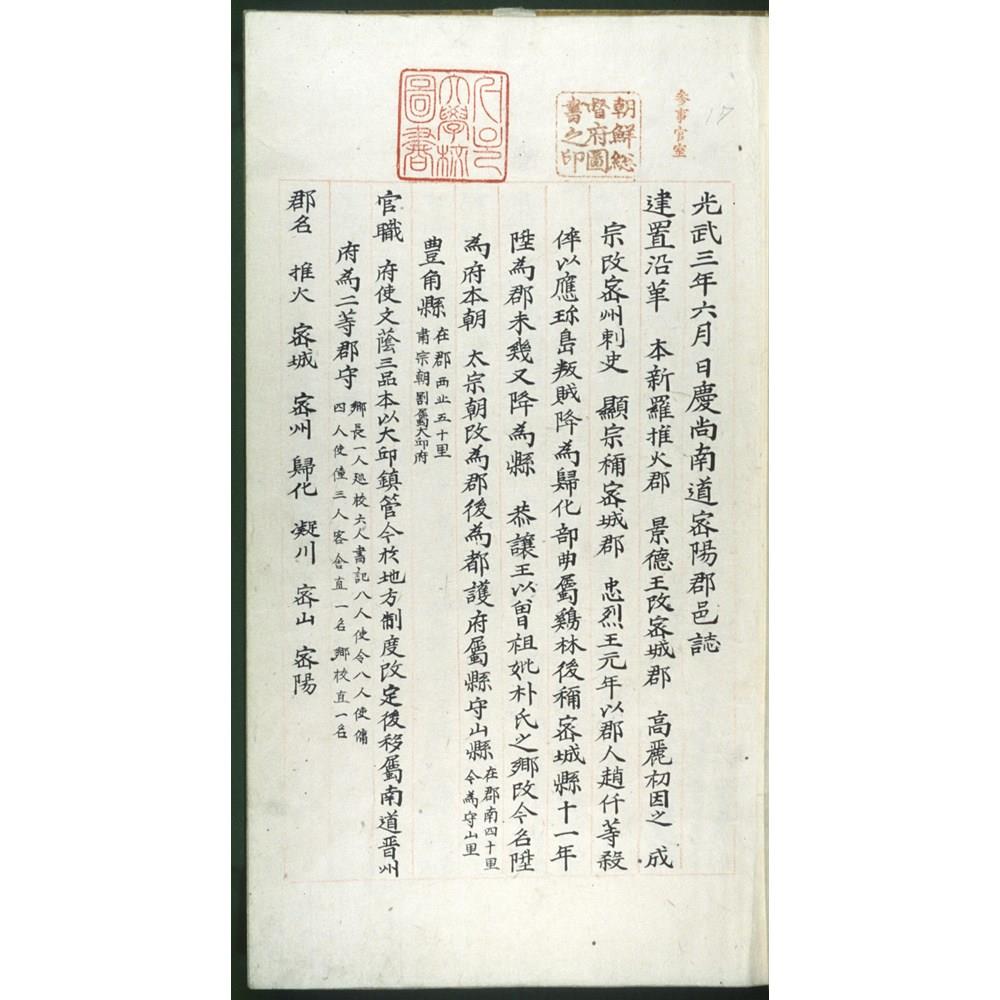 参事官室
17
朝鮮総
督府圖
書之印
大學校
圖書
光武三年六月 日慶尚南道密陽郡邑誌
建置沿革 本新羅推火郡 景德王改密城郡 高麗初因之 成
宗改密州刺史 顯宗稱密城郡 忠烈王元年以郡人趙仟等殺
倅以應珎島叛賊降為歸化部曲屬鷄林後稱密城縣十一年
陞為郡未幾又降為縣 恭讓王以曾祖妣朴氏之鄉改今名陞
為府本朝 太宗朝改為郡後為都護府屬縣守山縣 在郡南四十里
今為守山里
豊角縣 在郡西北五十里
肅宗朝割屬大邱府
官職 府使文蔭三品本以大邱鎮管今於地方制度改定後移屬南道晋州
府為二等郡守 鄉長一人廵校六人書記八人使令八人使傭
四人使僮三人客舍直一名鄉校直一名
郡名 推火 密城 密州 歸化 凝川 密山 密陽